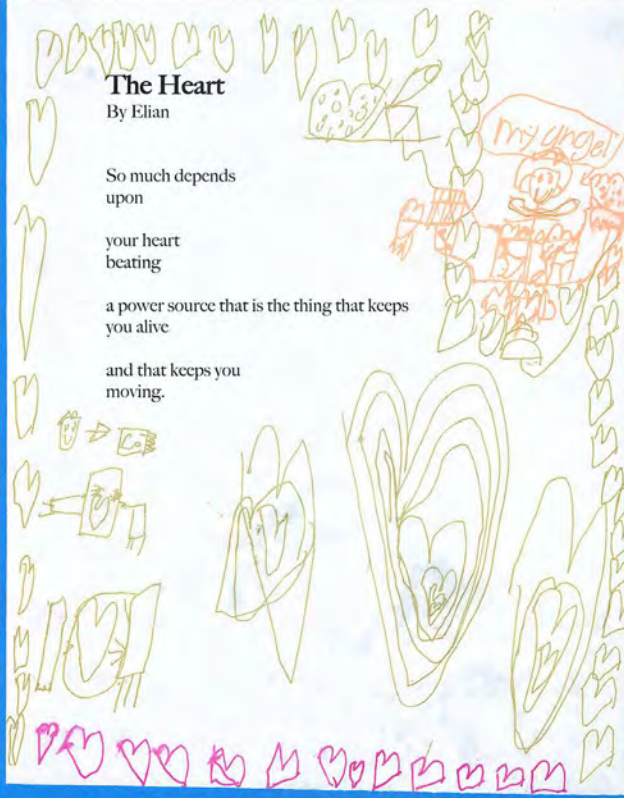 The Heart
By Elian
So much depends
upon
your heart
beating
a power source that is the thing that keeps
you alive
and that keeps you
moving.
my angel